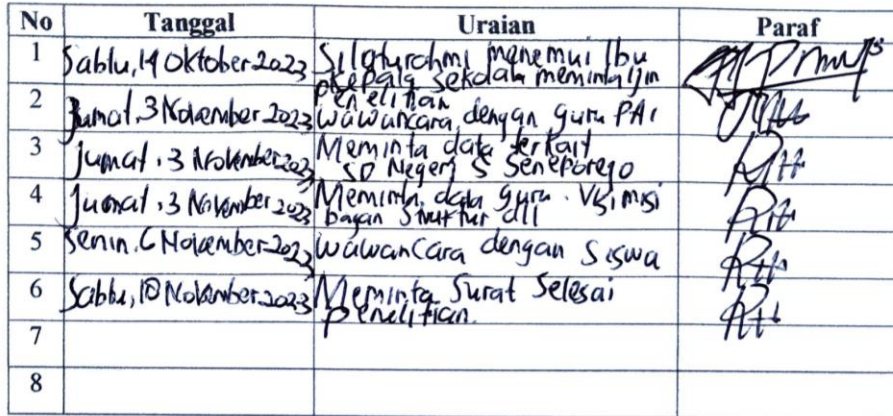 No Tanggal Uraian Paraf
1 Sabtu, 14 Oktober 2023 Silaturahmi menemui Ibu
Kepala sekolah meminta ijin
penelitian
2 Jumat, 3 November 2023 Wawancara dengan guru PAI
3 Jumat, 3 November 2023 Meminta data terkait
SD Negeri 5 Seneporejo
4 Jumat, 3 November 2023 Meminta data guru. Visi misi
bagan struktur dll
5 Senin, 6 November 2023 Wawancara dengan siswa
6 Sabtu, November 2023 Meminta Surat Selesai
penelitian.
7
8